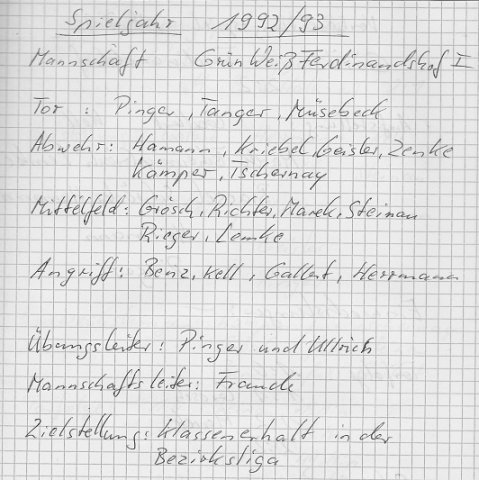 Spieljahr 1992/93
Mannschaft Grün Weiß Ferdinandshof I
Tor : Pinger, Tanger, Müsebeck
Abwehr: Hamann, Kriebel, Geisler, Zenke
Kämper, Tschernay
Mittelfeld: Grösch, Richter, Marek, Steinau
Rieger, Lemke
Angriff: Benz, Kell, Gallert, Herrmann
Übungsleiter: Pinger und Ullrich
Mannschaftsleiter: Franck
Zielstellung: Klassenerhalt in der
Bezirksliga